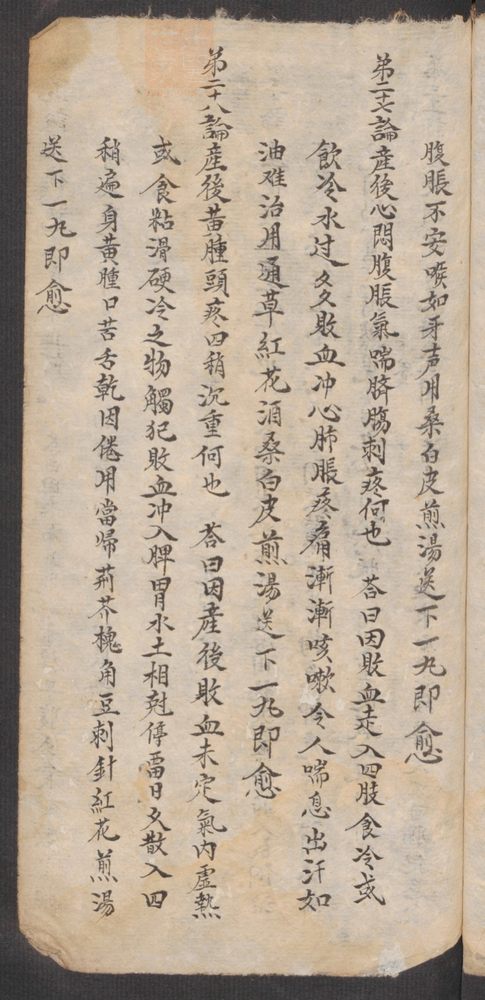 腹脹不安喉如牙声用桑白皮煎湯送下一丸即愈
第二十七論産後心悶腹脹氣喘臍腸刺疼何也　荅曰因敗血走入四肢食冷或
飲冷水过多敗血冲心肺脹疼痛漸漸咳嗽令人喘息出汗如
油难治用通草紅花酒桑白皮煎湯送下一丸即愈
第二十八論産後黄腫頭疼四稍沉重何也　荅曰因産後敗血未定氣内虚熱
或食粘滑硬冷之物觸犯敗血冲入脾胃水土相尅停畱日久散入四
稍遍身黄腫口苦舌乾因倦用當帰荊芥槐角豆刺針紅花煎湯
送下一丸即愈